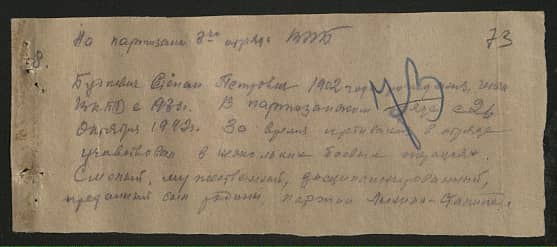 На партизана 3го отряда 73
8.
Степан Петрович 1902 года рождения, член
с 193 г. В партизанском отряде с 26
Октября 1942г. За время пребывания в отряде
участвовал в нескольких боевых операциях.
Смелый, мужественный, дисциплинированный,
преданный сын родины партии Ленина-Сталина.